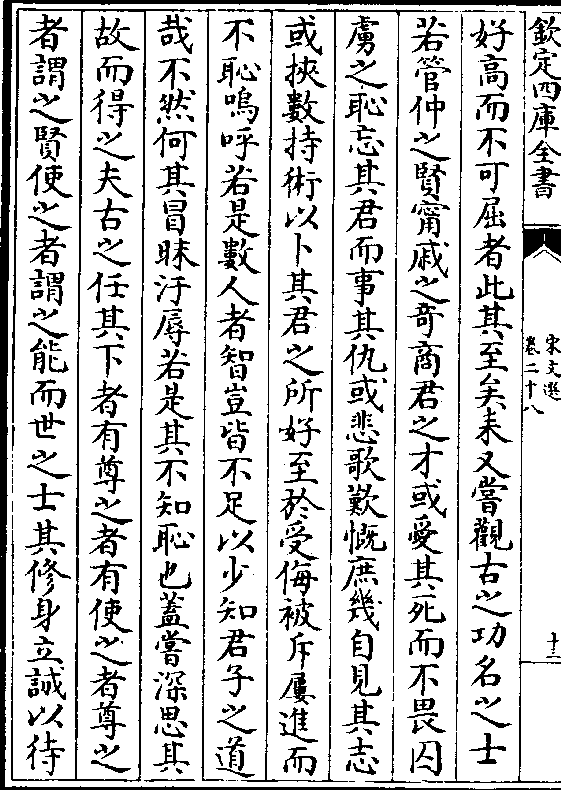 欽定四庫全書
宋文選
卷二十八
十三
好高而不可屈者此其至矣耒又嘗觀古之功名之士
若管仲之賢甯戚之奇商君之才或愛其死而不畏囚
虜之恥忘其君而事其仇或悲歌歎慨庶幾自見其志
或挾數持術以卜其君之所好至於受侮被斥屢進而
不恥嗚呼若是數人者智豈皆不足以少知君子之道
哉不然何其冒昧汙辱若是其不知恥也蓋嘗深思其
故而得之夫古之任其下者有尊之者有使之者尊之
者謂之賢使之者謂之能而世之士其修身立誠以待